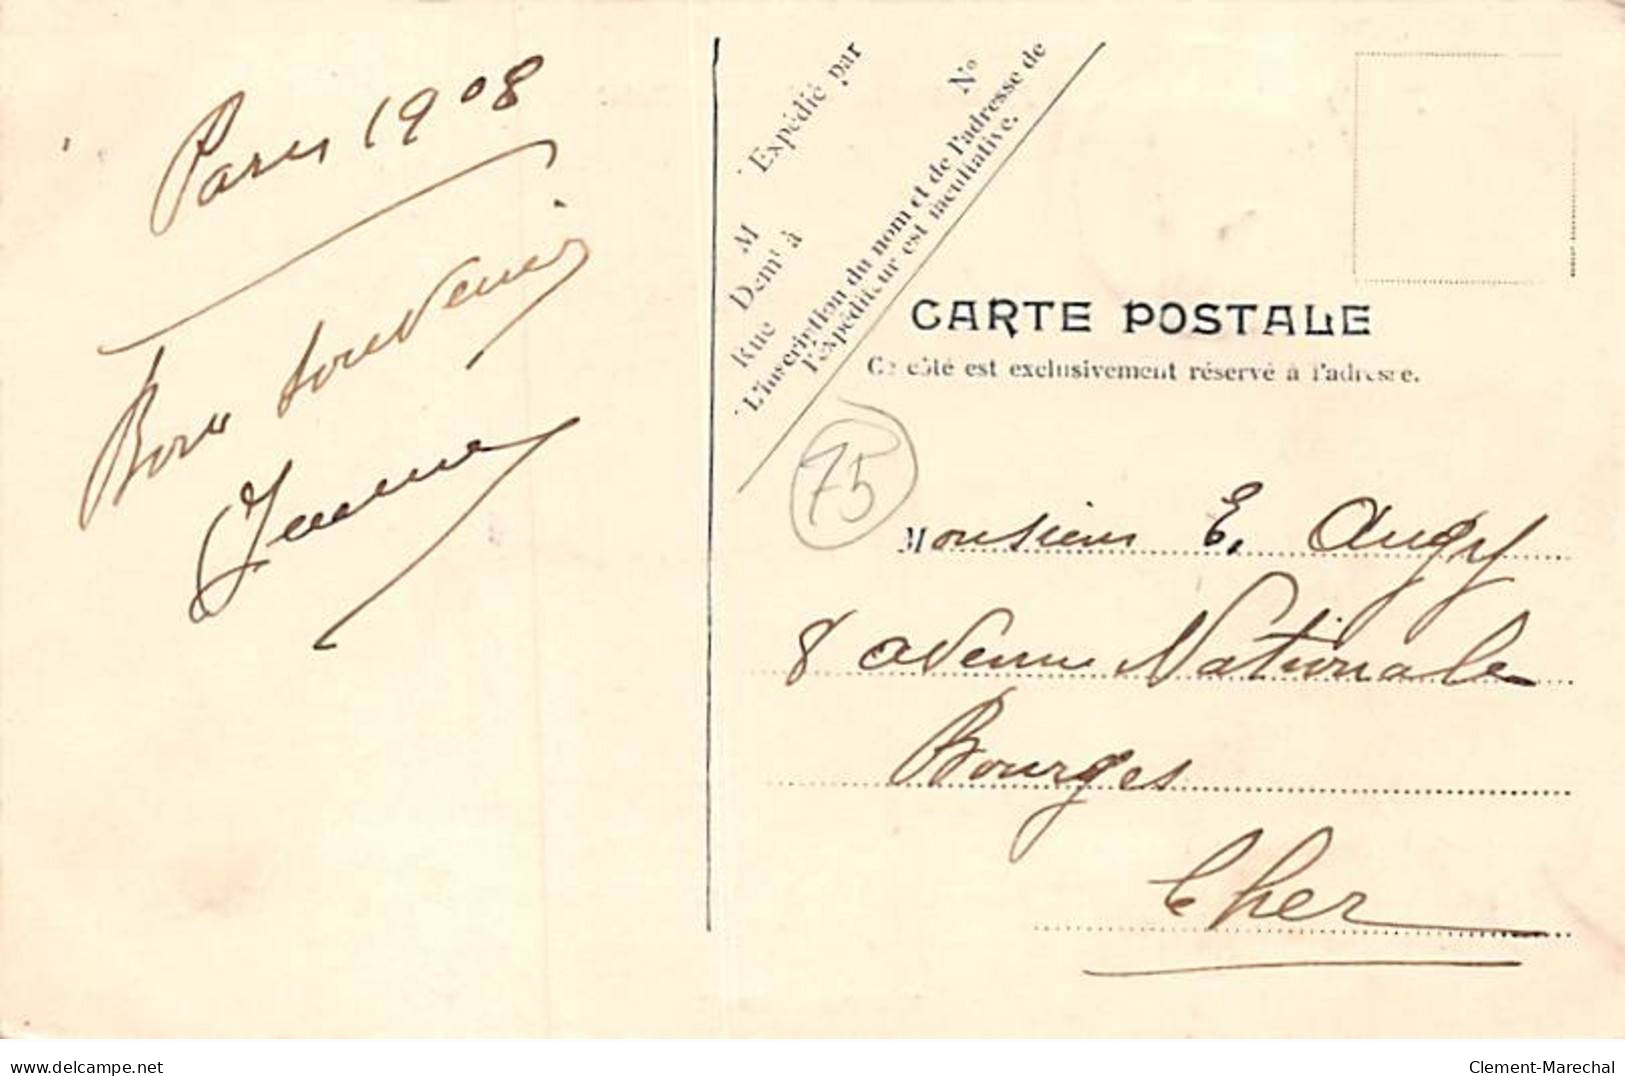 Paris 1908
Bon souvenir
Jeanne
Expédié par
M
Demt à
Rue
No
L'inscription du nom et de l'adresse de
l'expéditeur est facultative.
CARTE POSTALE
Ce côté est exclusivement réservé à l'adresse.
75
Monsieur E. Augy
8 avenue Nationale
Bourges
Cher
delcampe.net
Clement-Marechal